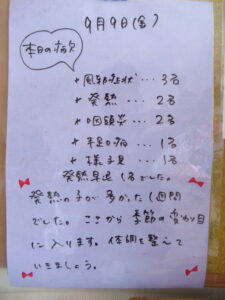 9月9日(金)
本日の病欠
+ 風邪症状 ・・・ 3名
+ 発熱 ・・・ 2名
+ 咽頭炎 ・・・ 2名
+ 手足口病 ・・・ 1名
+ 様子見 ・・・ 1名
発熱早退 1名でした。
発熱の子が多かった1週間
でした。ここから季節の変わり目
に入ります。体調を整えて
いきましょう。